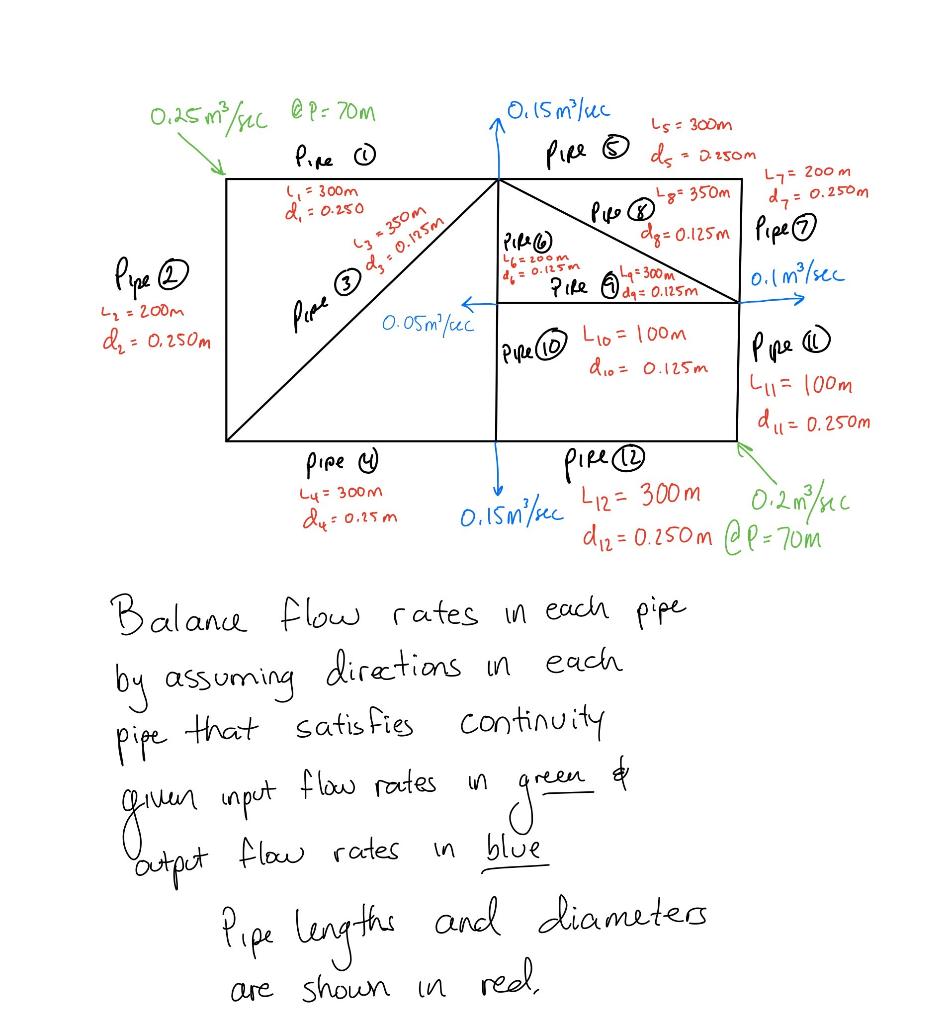 0.25m³/sec @P=70m
0.15m³/sec
Pipe ①
L₁ = 300m
d₁ = 0.250
Pipe ⑤
L₅ = 300m
d₅ = 0.250m
L₇ = 200m
d₇ = 0.250m
Pipe ⑦
Pipe ⑧
L₈ = 350m
d₈ = 0.125m
Pipe ②
L₂ = 200m
d₂ = 0.250m
Pipe ③
L₃ = 350m
d₃ = 0.125m
Pipe ⑥
L₆ = 200m
d₆ = 0.125m
Pipe ⑨
L₉ = 300m
d₉ = 0.125m
0.1m³/sec
0.05m³/sec
Pipe ⑩
L₁₀ = 100m
d₁₀ = 0.125m
Pipe ⑪
L₁₁ = 100m
d₁₁ = 0.250m
Pipe ④
L₄ = 300m
d₄ = 0.25m
0.15m³/sec
Pipe ⑫
L₁₂ = 300m
d₁₂ = 0.250m
0.2m³/sec
@P=70m
Balance flow rates in each pipe
by assuming directions in each
pipe that satisfies continuity
given input flow rates in green &
output flow rates in blue
Pipe lengths and diameters
are shown in red.